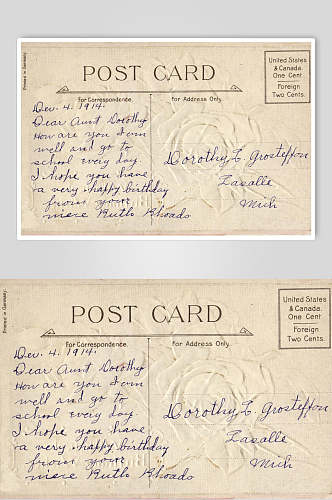 Printed in Germany.
POST CARD
For Correspondence.
For Address Only.
United States
& Canada.
One Cent
Foreign
Two Cents.
Dec. 4. 1914.
Dear Aunt Dorothy
How are you I am
well and go to
school every day.
I hope you have
a very happy birthday
from your
niece Ruth Rhoads
Dorothy L Grosteffon
Lasalle
Mich
Printed in Germany.
POST CARD
For Correspondence.
For Address Only.
United States
& Canada.
One Cent
Foreign
Two Cents.
Dec. 4. 1914.
Dear Aunt Dorothy
How are you I am
well and go to
school every day.
I hope you have
a very happy birthday
from your
niece Ruth Rhoads
Dorothy L Grosteffon
Lasalle
Mich